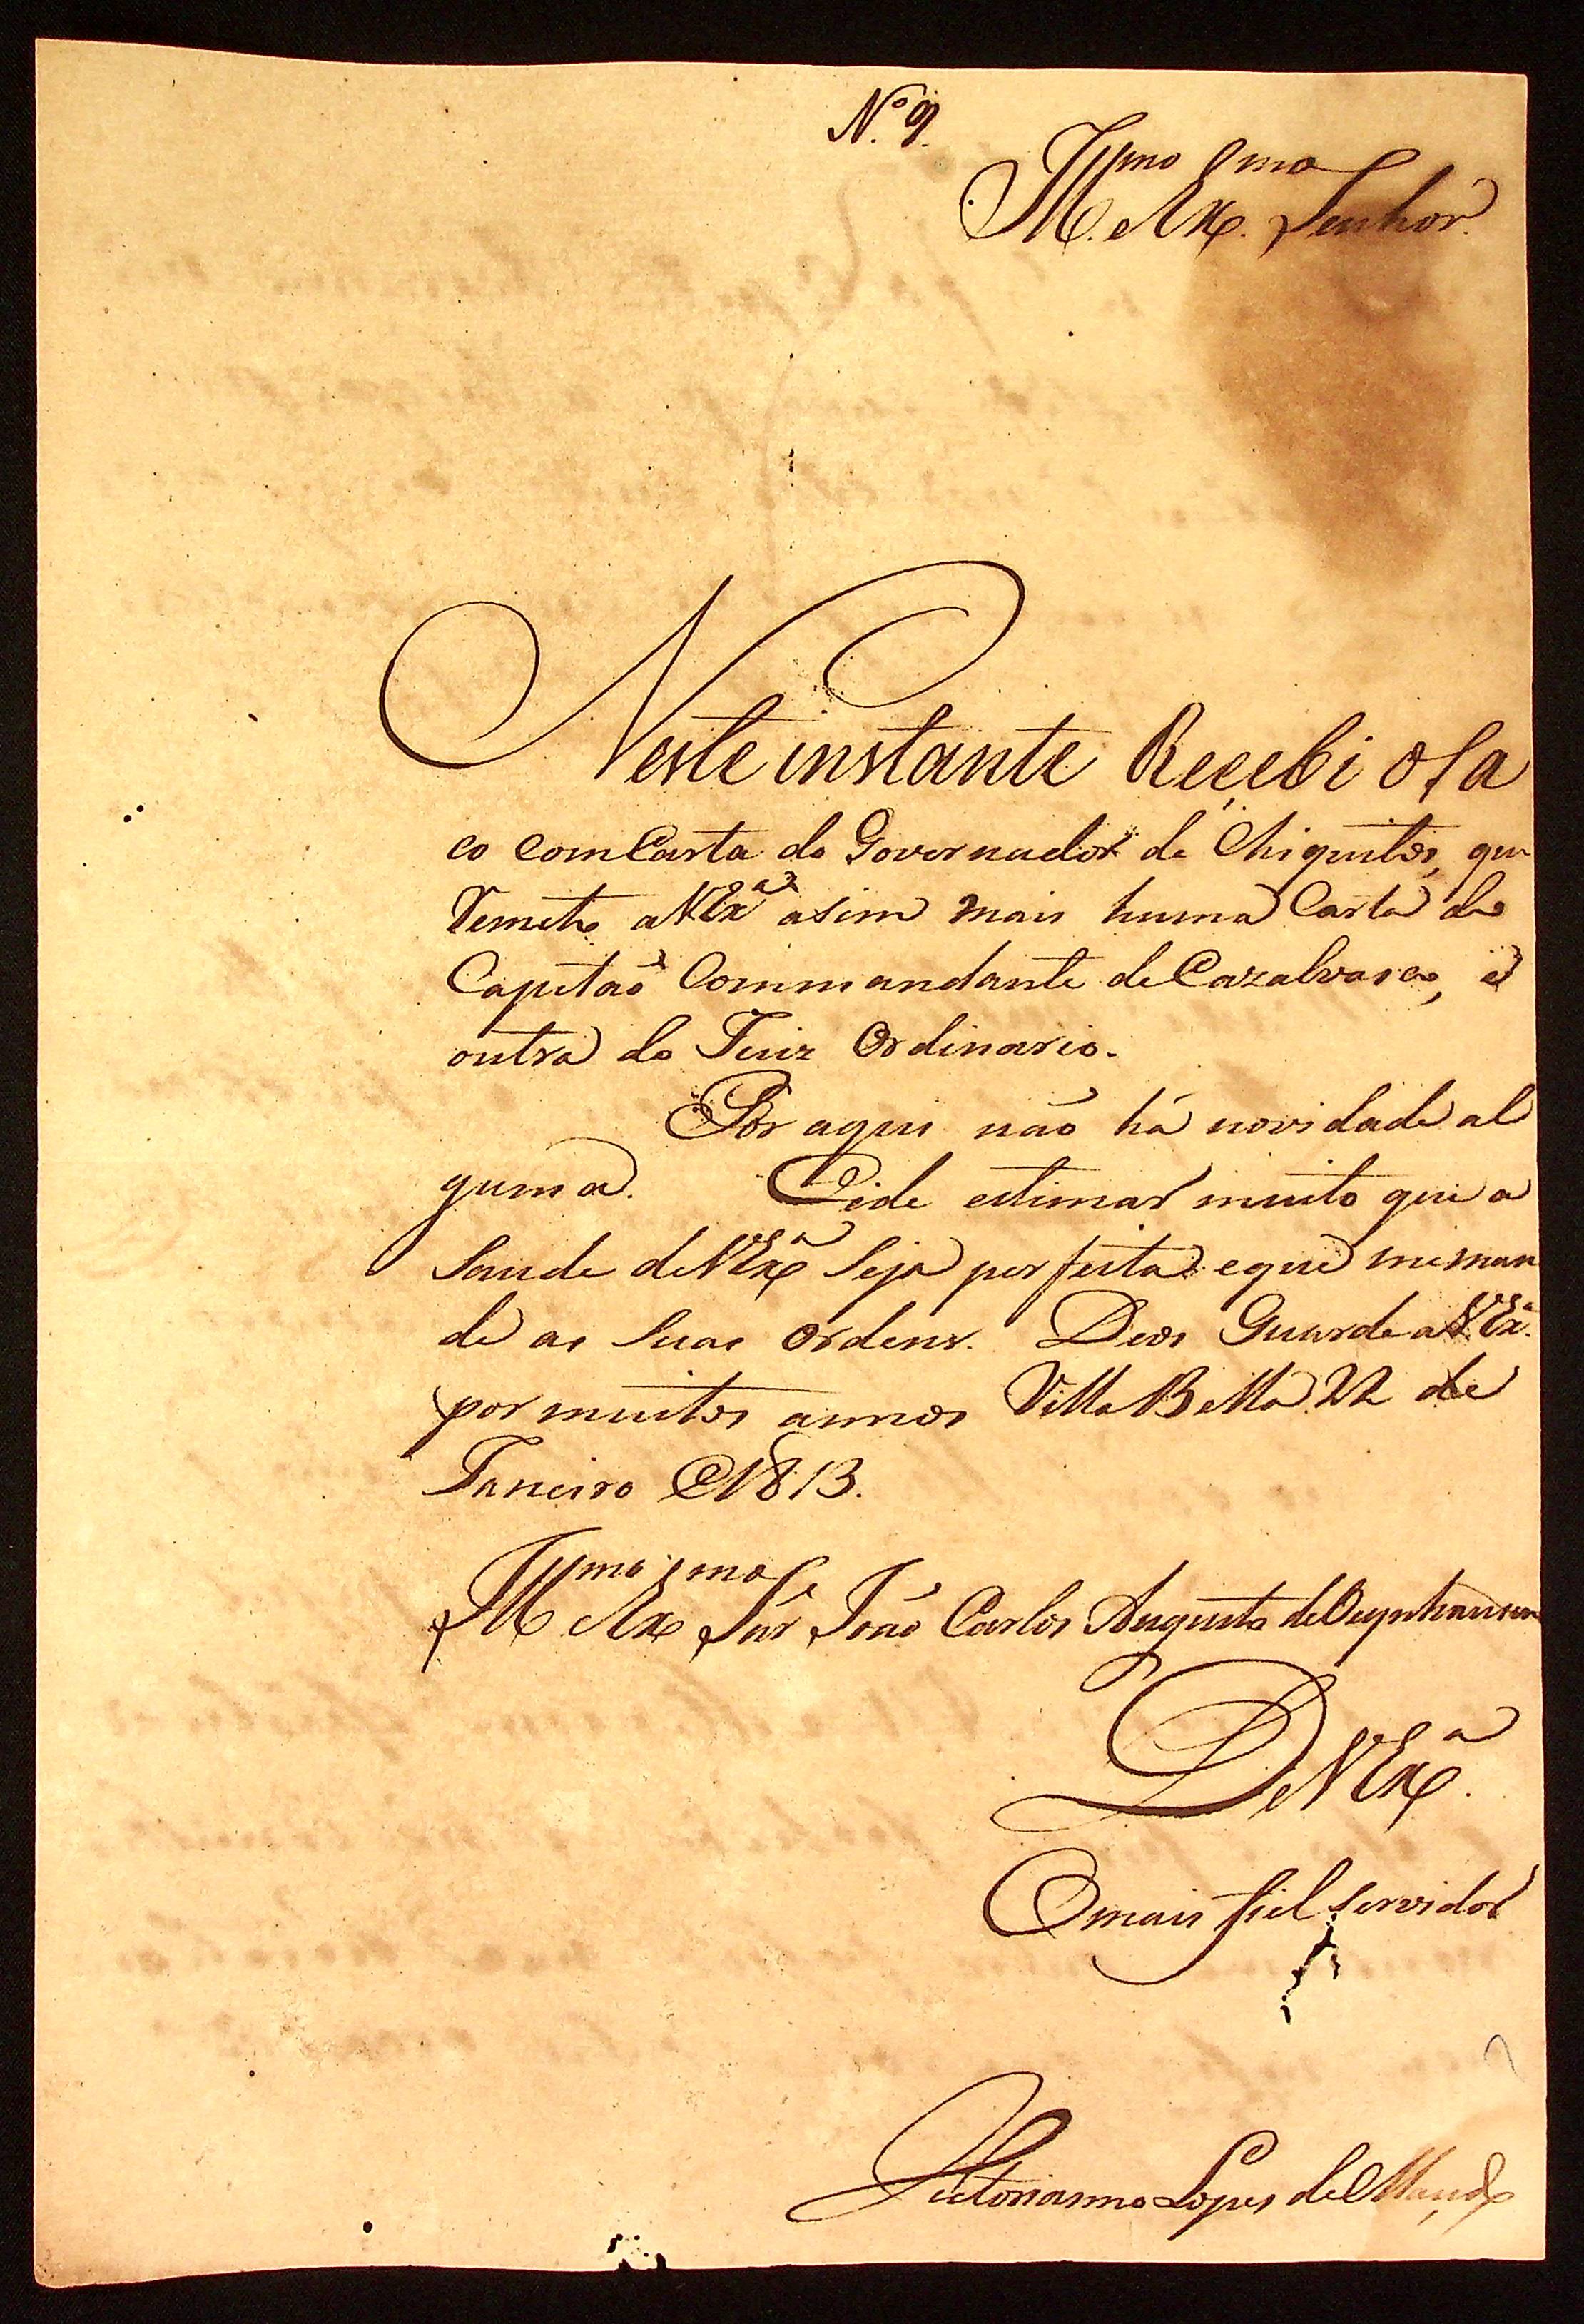 N.º 9.
Ill.mo e Ex.mo Senhor.
Neste instante Recebi o Sa
co com Carta do Governador de Chiquitos, que
Remeto a V Ex.ª asim mais huma Carta do
Capitaõ Commandante de Cazalvasco, e
outra do Juiz Ordinario.
Por aqui naõ há novidade al
guma. Eide estimar muito que a
Saude de V Ex.ª Seja perfeita e que me man
de as Suas Ordens. Deos Guarde a V Ex.ª
por muitos annos Villa Bella 22 de
Janeiro de 1813.
Ill.mo e Ex.mo Sñr João Carlos Augusto de Oeynhausen
De V Ex.ª
O mais fiel Servidor
Victorianno Lopes de